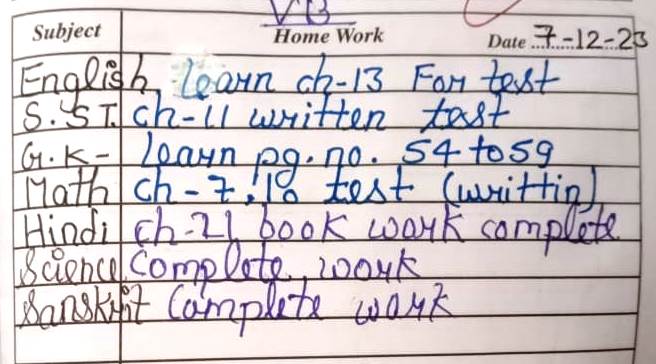 VB
Subject Home Work Date 7-12-23
English learn ch-13 For test
S.ST. ch-11 written test
G.K- learn pg.no. 54 to 59
Math ch-7, 10 test (writtin)
Hindi ch-21 book work complete
Science Complete work
Sanskrit Complete work